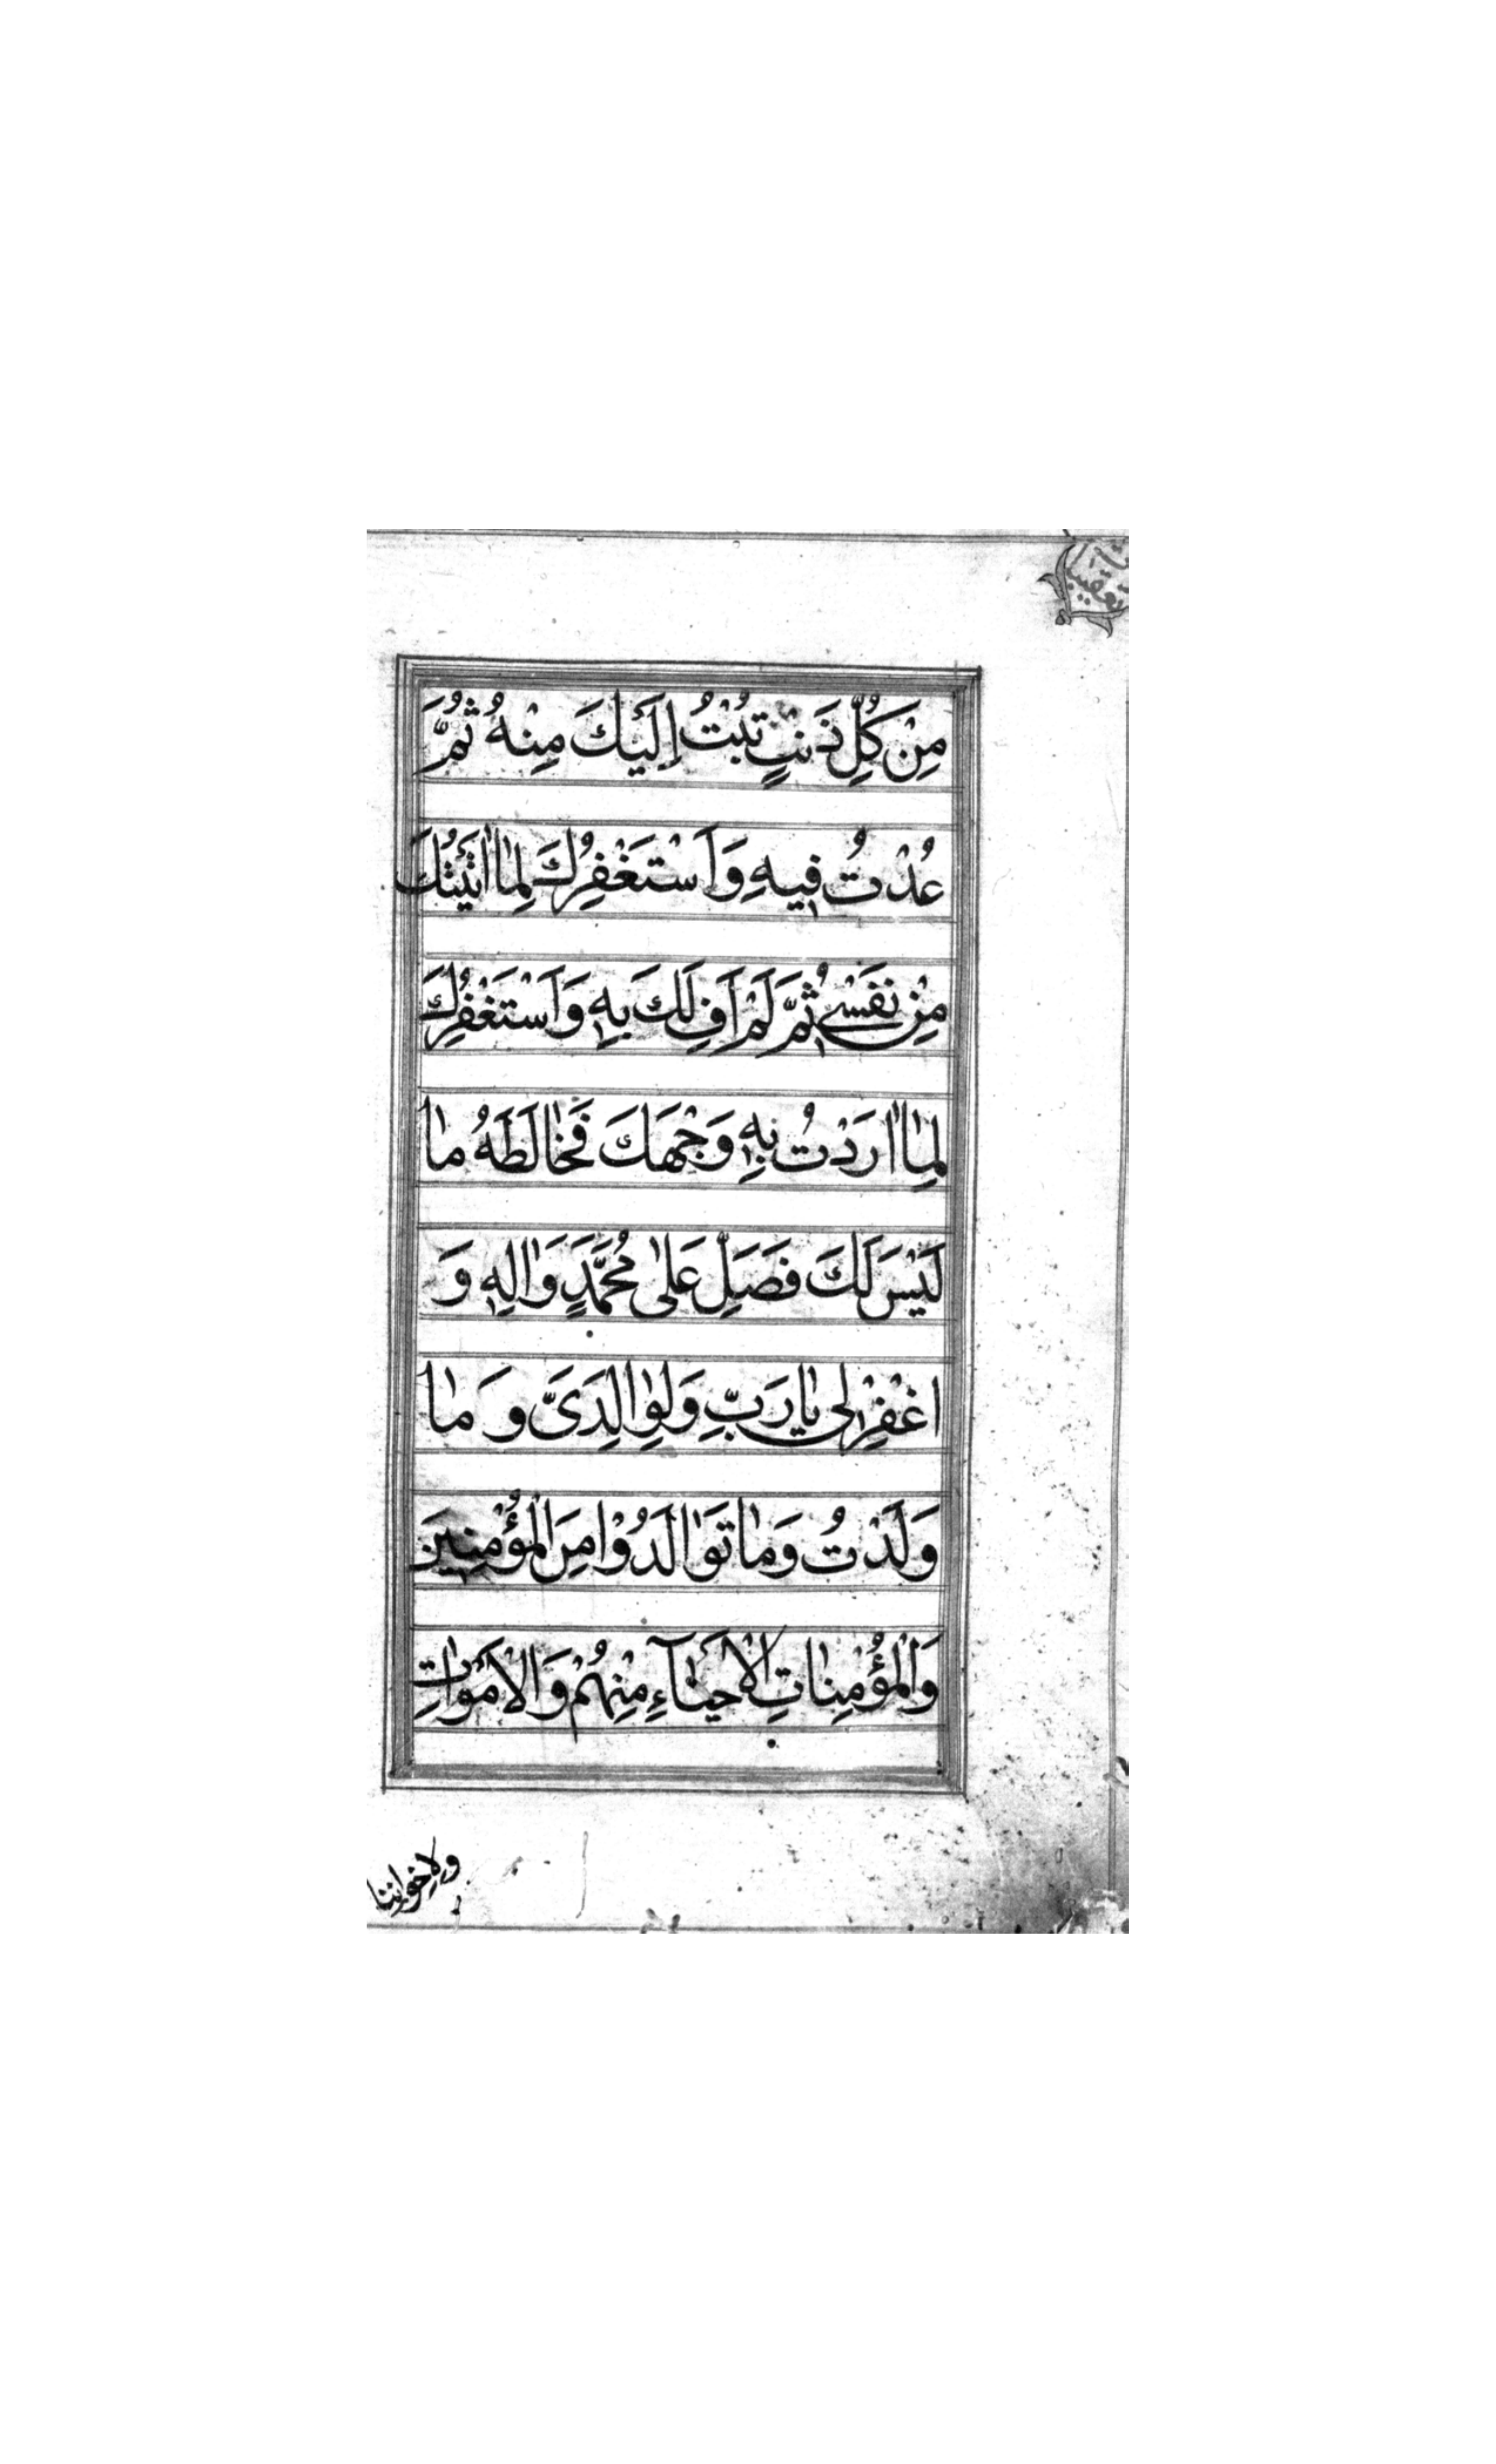 مِنْ كُلِّ ذَنْبٍ تُبْتُ اِلَيْكَ مِنْهُ ثُمَّ
عُدْتُ فِيهِ وَاَسْتَغْفِرُكَ لِمٰا اٰتَيْتُكَ
مِنْ نَفْسِي ثُمَّ لَمْ اَفِ لَكَ بِهِ وَاَسْتَغْفِرُكَ
لِمٰا اَرَدْتُ بِهِ وَجْهَكَ فَخٰالَطَهُ مٰا
لَيْسَ لَكَ فَصَلِّ عَلىٰ مُحَمَّدٍ وَاٰلِهِ وَ
اغْفِرْ لِي يٰا رَبِّ وَلِوٰالِدَيَّ وَ مٰا
وَلَدْتُ وَمٰا تَوٰالَدُوْا مِنَ الْمُؤْمِنِينَ
وَالْمُؤْمِنٰاتِ الْاَحْيٰٓاءِ مِنْهُمْ وَالْاَمْوٰاتِ
ولاخواننا